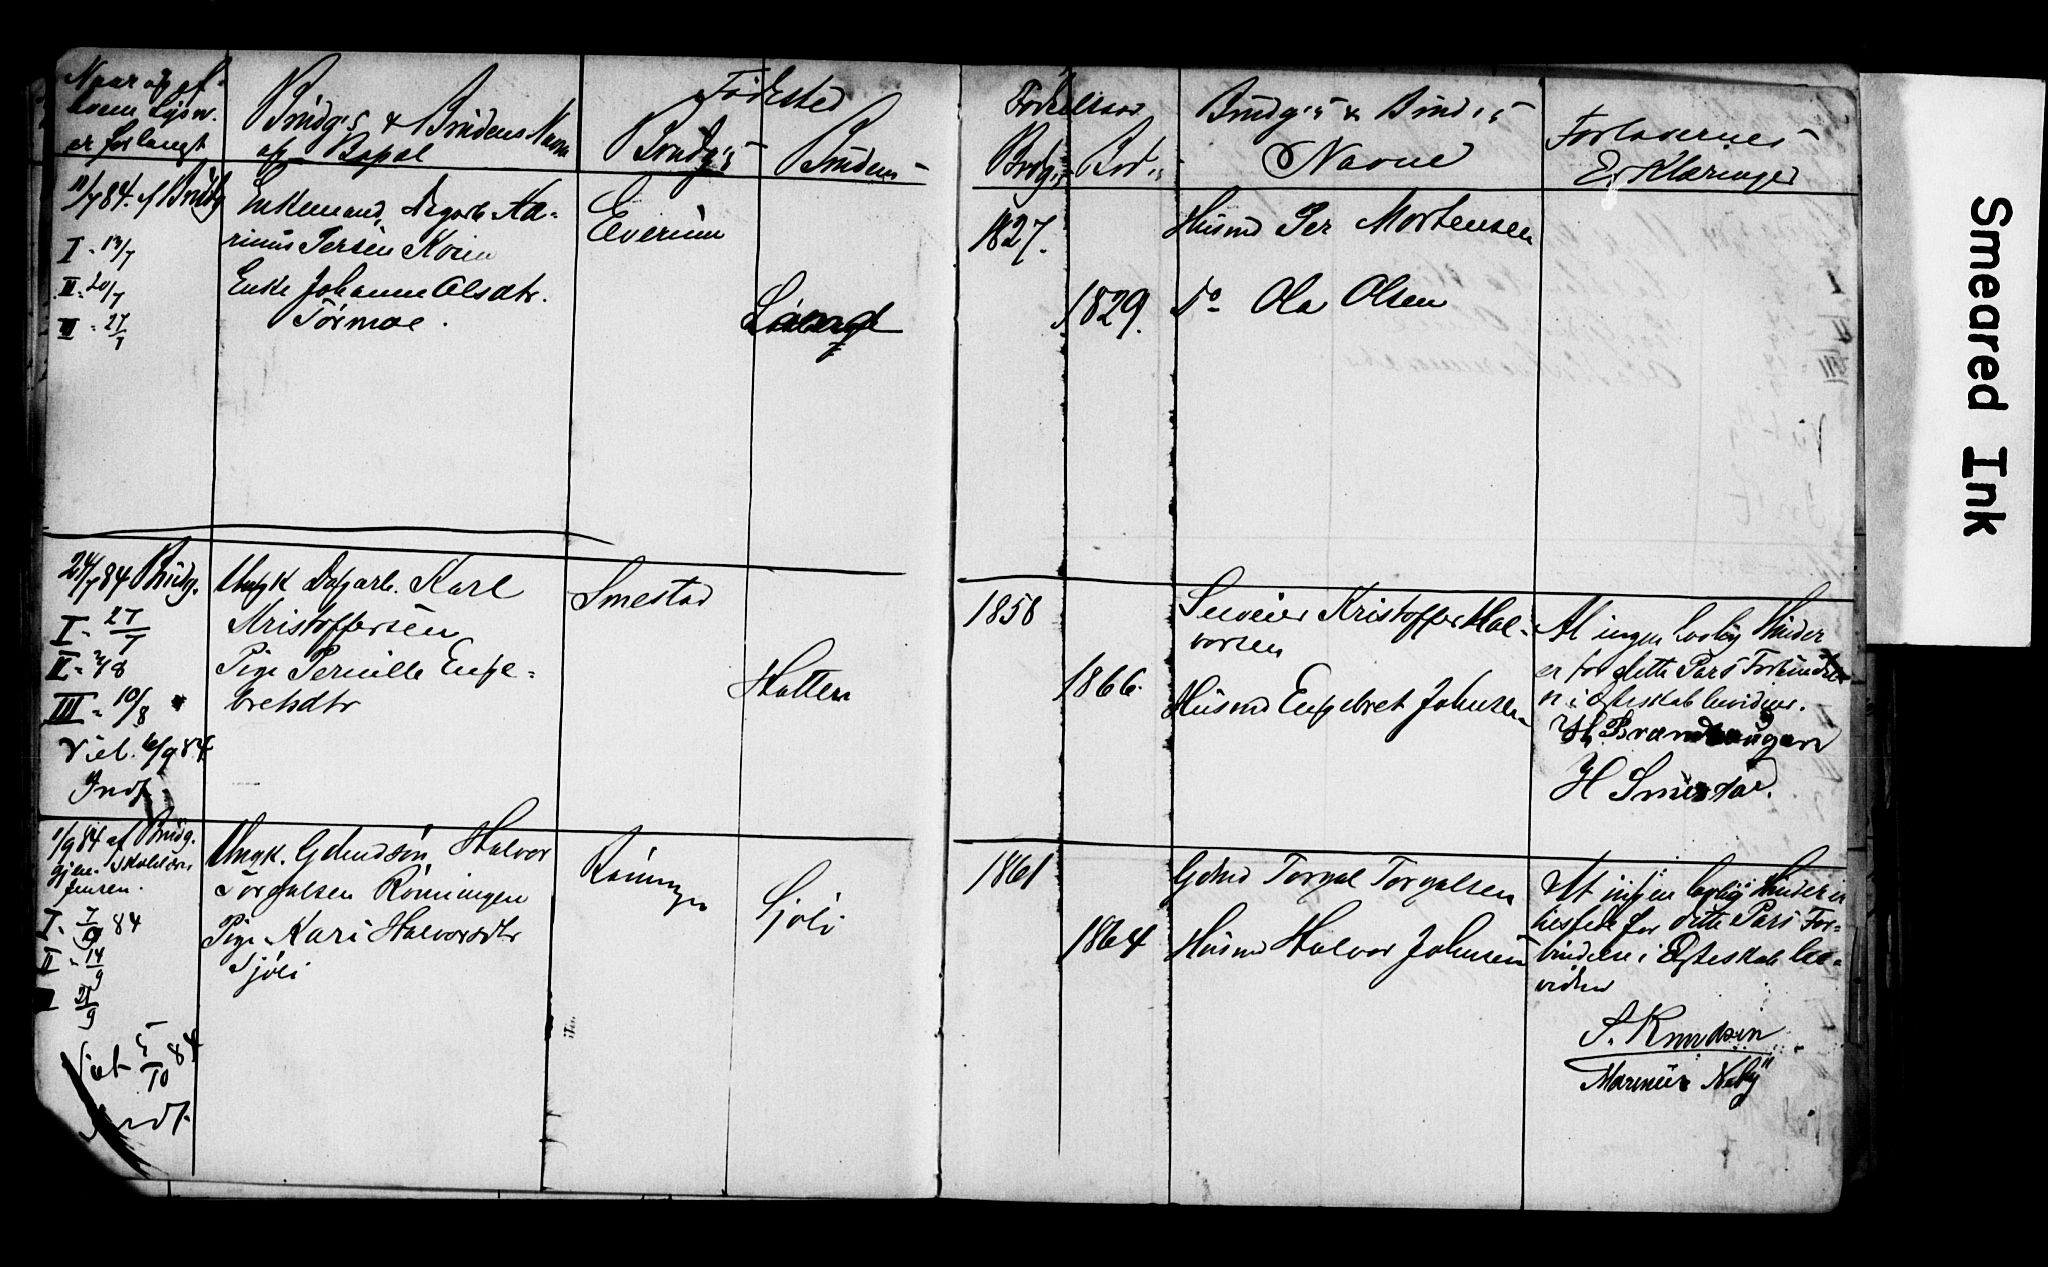 Naar og af
hvem Lysn.
er forlangt
Brudg.s & Brudens Navn
og Bopæl
Fødested
Brudg.s
Brudens
Fødselsaar
Brudg.s
Brud.s
Brudg.s & Brud.s
Navne
Forlovernes
Erklæringer
11/7 84. af Brudg
I - 13/7
II - 20/7
III - 27/7
Enkemand, Dagarb. Ma-
rinus Persen Koien
Enke Johanne Olsdtr.
Tørmoe.
Elverum
1827.
1829.
Husmd Per Mortensen
Do Ola Olsen
24/7 84 Brudg.
I - 27/7
II - 3/8
III - 10/8
Viet. 6/9 84
Indf.
Ungk Dagarb. Karl
Kristoffersen
Pige Pernille Enge-
bretsdtr
Smestad
Hatten
1858
1866.
Kristoffer Hal-
vorsen
Husmd Engebret Johnsen
At ingen lovlig Hinder
er for dette Pars Forbindelse
i Ægteskab bevidnes.
H. Brandhaugen
H Smestad.
1/9 84 af Brudg.
gjen. Skolelærer
Jensen.
I - 7/9 84
II - 14/9
21/9
Viet 5/10 84
Indf.
Ungk. Gdmdsøn Halvor
Torgalsen Røningen
Pige Kari Halvorsdtr
Sjøli
Røningen
Sjøli
1861
1864
Gdmd Torgal Torgalsen
Husmd Halvor Johnsen
At ingen lovlig Hinder er
tilstede for dette Pars For-
bindelse i Ægteskab be-
vidnes
S. Knudsen
Marinus Neby
Smeared Ink